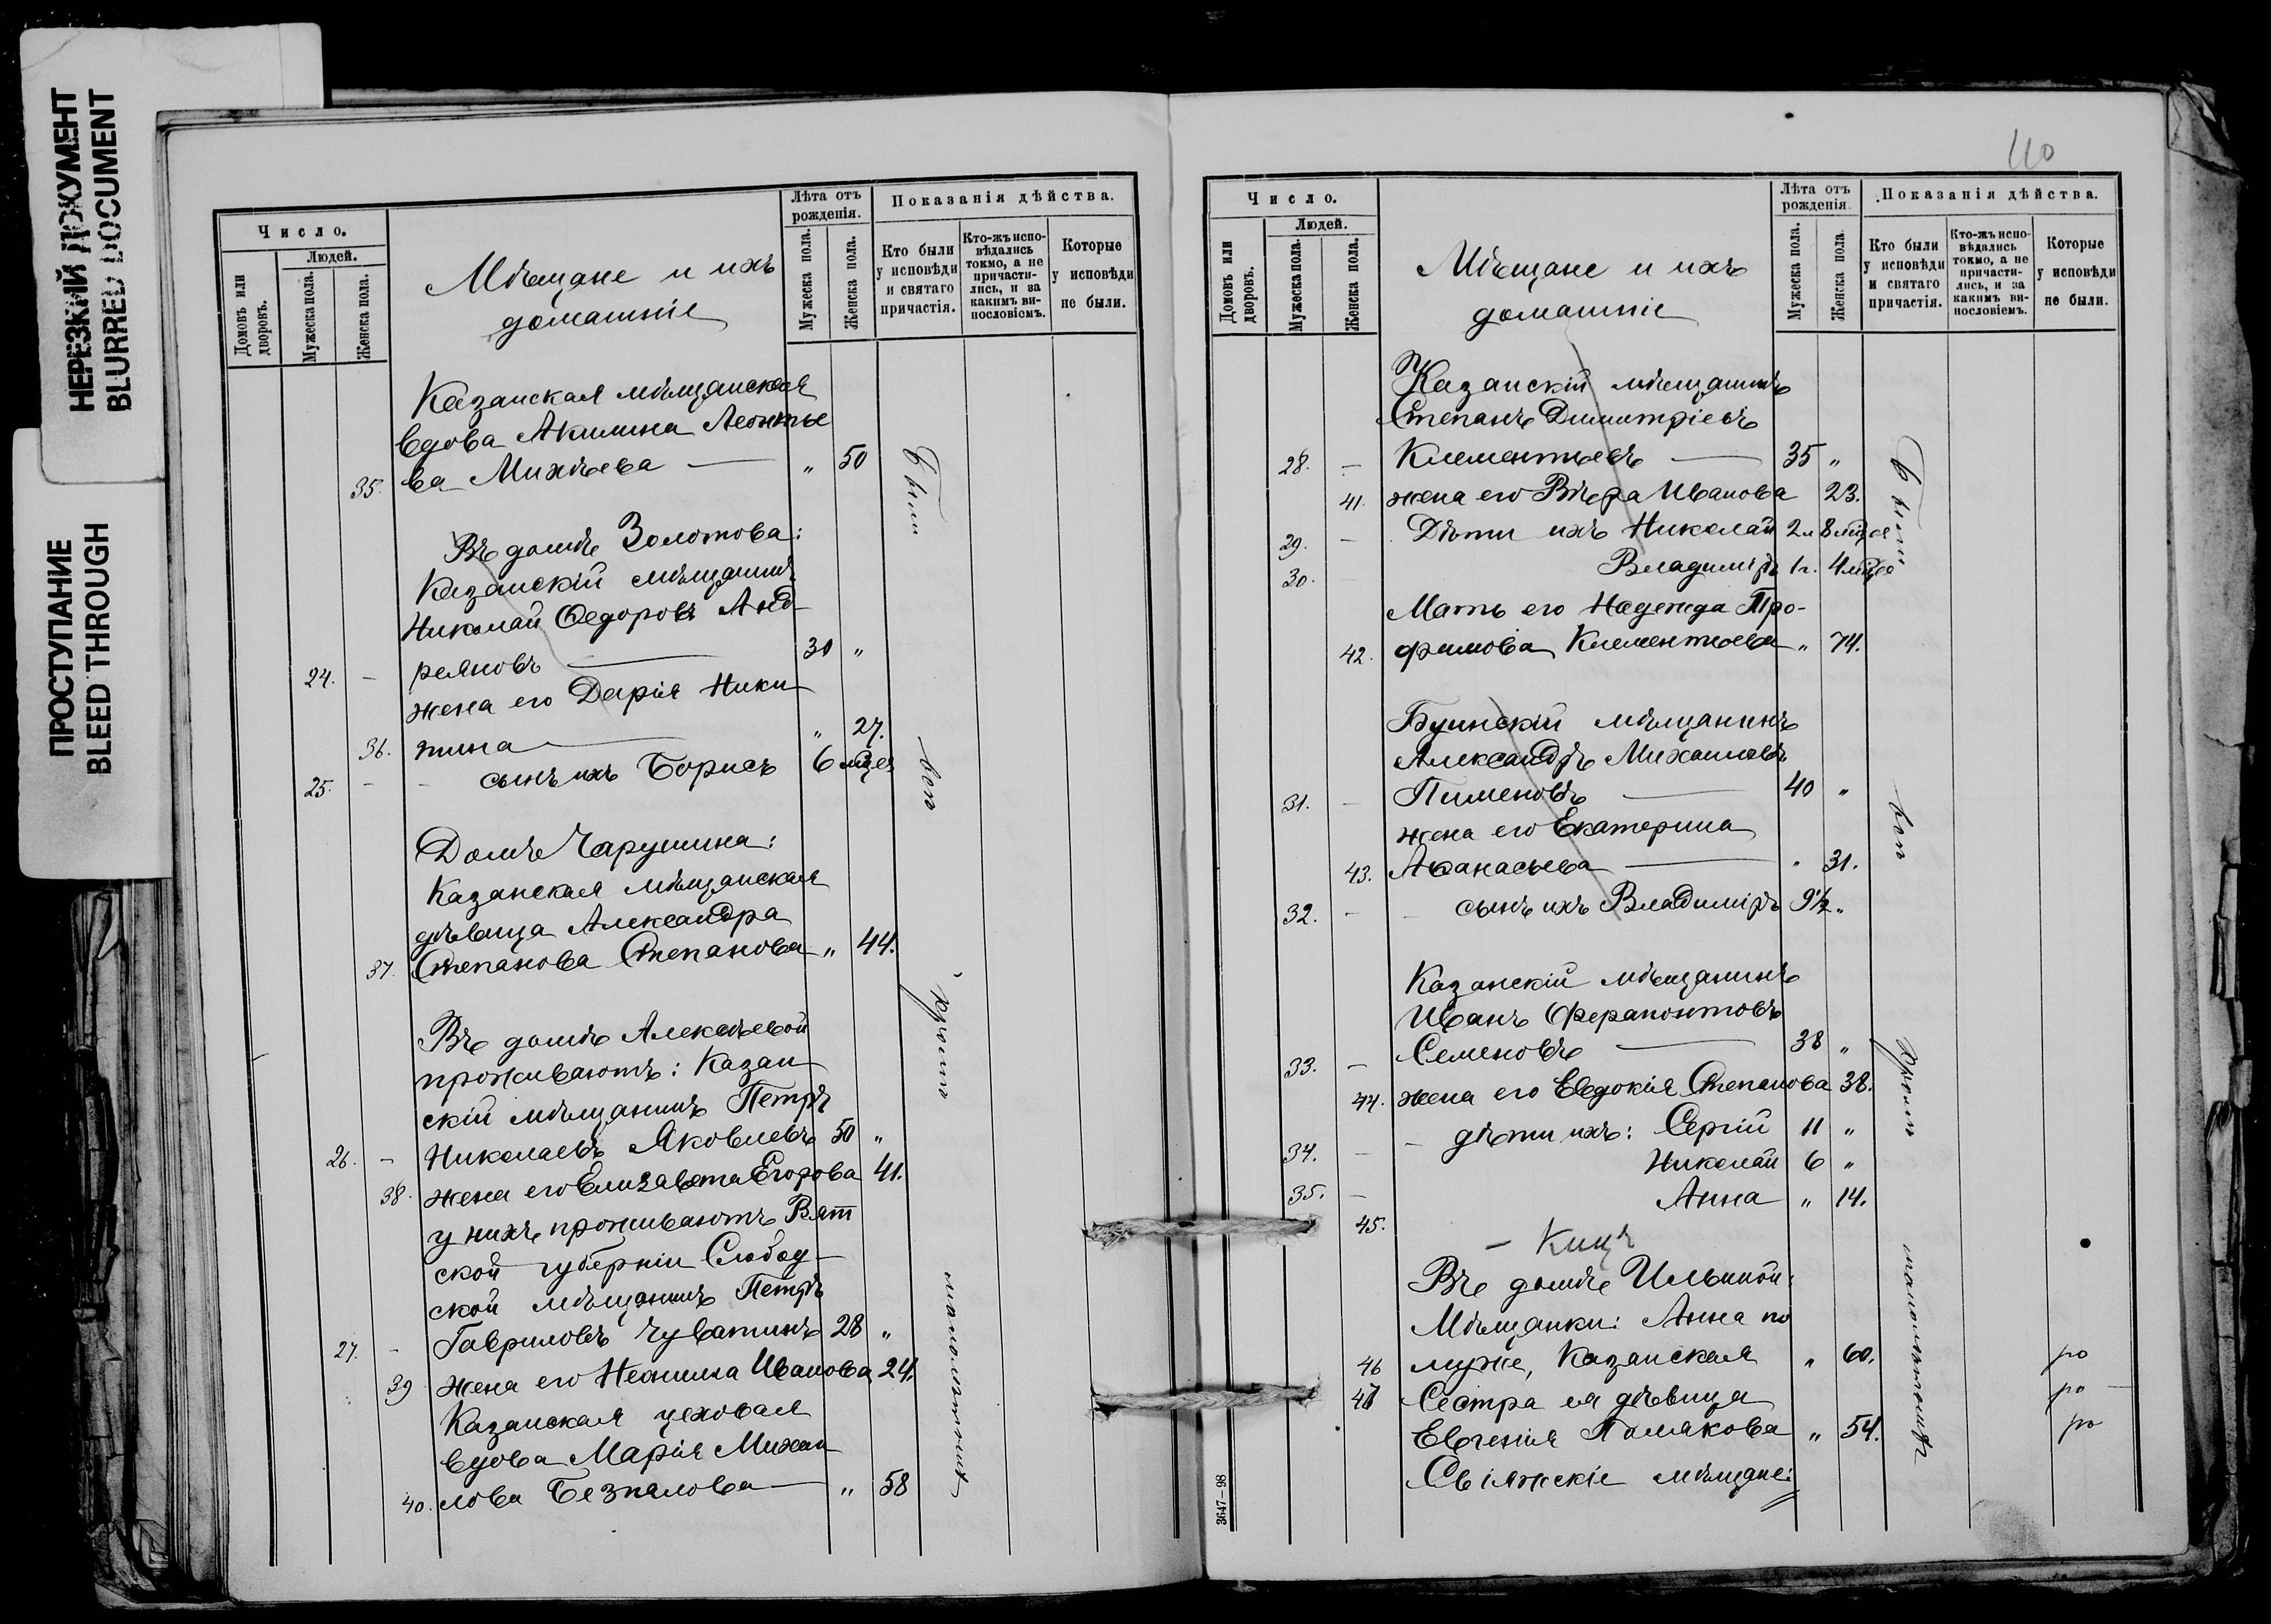 НЕРЕЗКИЙ ДОКУМЕНТ
BLURRED DOCUMENT
ПРОСТУПАНИЕ
BLEED THROUGH
Число.
Людей.
Домовъ или дворовъ.
Мужеска пола.
Женска пола.
Мѣщане и ихъ
домашніе
Лѣта отъ рожденія.
Мужеска пола.
Женска пола.
Показанія дѣйства.
Кто были у исповѣди и святаго причастія.
Кто-жъ испо-вѣдались токмо, а не причасти-лись, и за какимъ ви-нословіемъ.
Которые у исповѣди не были.
Казанская мѣщанская
вдова Акилина Леонтье
35. ва Михѣева — „ 50
Въ домѣ Золотова:
Казанскій мѣщанинъ
Николай Ѳедоровъ Анд
24. - реяновъ — 30 „
жена его Дарія Ники
36. тина — „ 27.
25. - - сынъ ихъ Борисъ 6 мѣцев
Домъ Чарушина:
Казанская мѣщанская
дѣвица Александра
37. Степанова Степанова „ 44.
Въ домѣ Алексѣевой
проживаютъ: Казан
скій мѣщанинъ Петръ
26. - Николаевъ Яковлевъ 50 „
38. жена его Елизавета Егорова 41.
у нихъ проживаютъ Вят
ской губерніи Слобод
ской мѣщанинъ Петръ
27. - Гавриловъ Чуватинъ 28 „
39 жена его Неонила Иванова 24.
Казанская цеховая
вдова Марія Михаи
40. лова Безпалова — „ 58
110
Число.
Людей.
Домовъ или дворовъ.
Мужеска пола.
Женска пола.
Мѣщане и ихъ
домашніе
Лѣта отъ рожденія.
Мужеска пола.
Женска пола.
Показанія дѣйства.
Кто были у исповѣди и святаго причастія.
Кто-жъ испо-вѣдались токмо, а не причасти-лись, и за какимъ ви-нословіемъ.
Которые у исповѣди не были.
Казанскій мѣщанинъ
Степанъ Димитріевъ
28. - Клементьевъ — 35 „
41. жена его Вѣра Иванова 23.
29. - Дѣти ихъ Николай 2 л 8 мѣцев
30. - Владиміръ 1 г. 4 мѣцев
Мать его Надежда Тро-
42. фимова Клементьева „ 74.
Буинскій мѣщанинъ
Александръ Михаиловъ
31. - Пименовъ — 40 „
жена его Екатерина
43. Аѳанасьева — „ 31.
32. - - сынъ ихъ Владиміръ 9½ „
Казанскій мѣщанинъ
Иванъ Ферапонтовъ
33. - Семеновъ — 38 „
44. жена его Евдокія Степанова 38.
34. - - дѣти ихъ: Сергій 11 „
Николай 6 „
35. - Анна „ 14.
45.
Въ домѣ Ильиной:
Мѣщанки: Анна по
46 мужѣ, Казанская „ 60. ро
47 Сестра ея дѣвица ро
Евгенія Полякова „ 54. ро
Свіяжскіе мѣщане:
3647—98